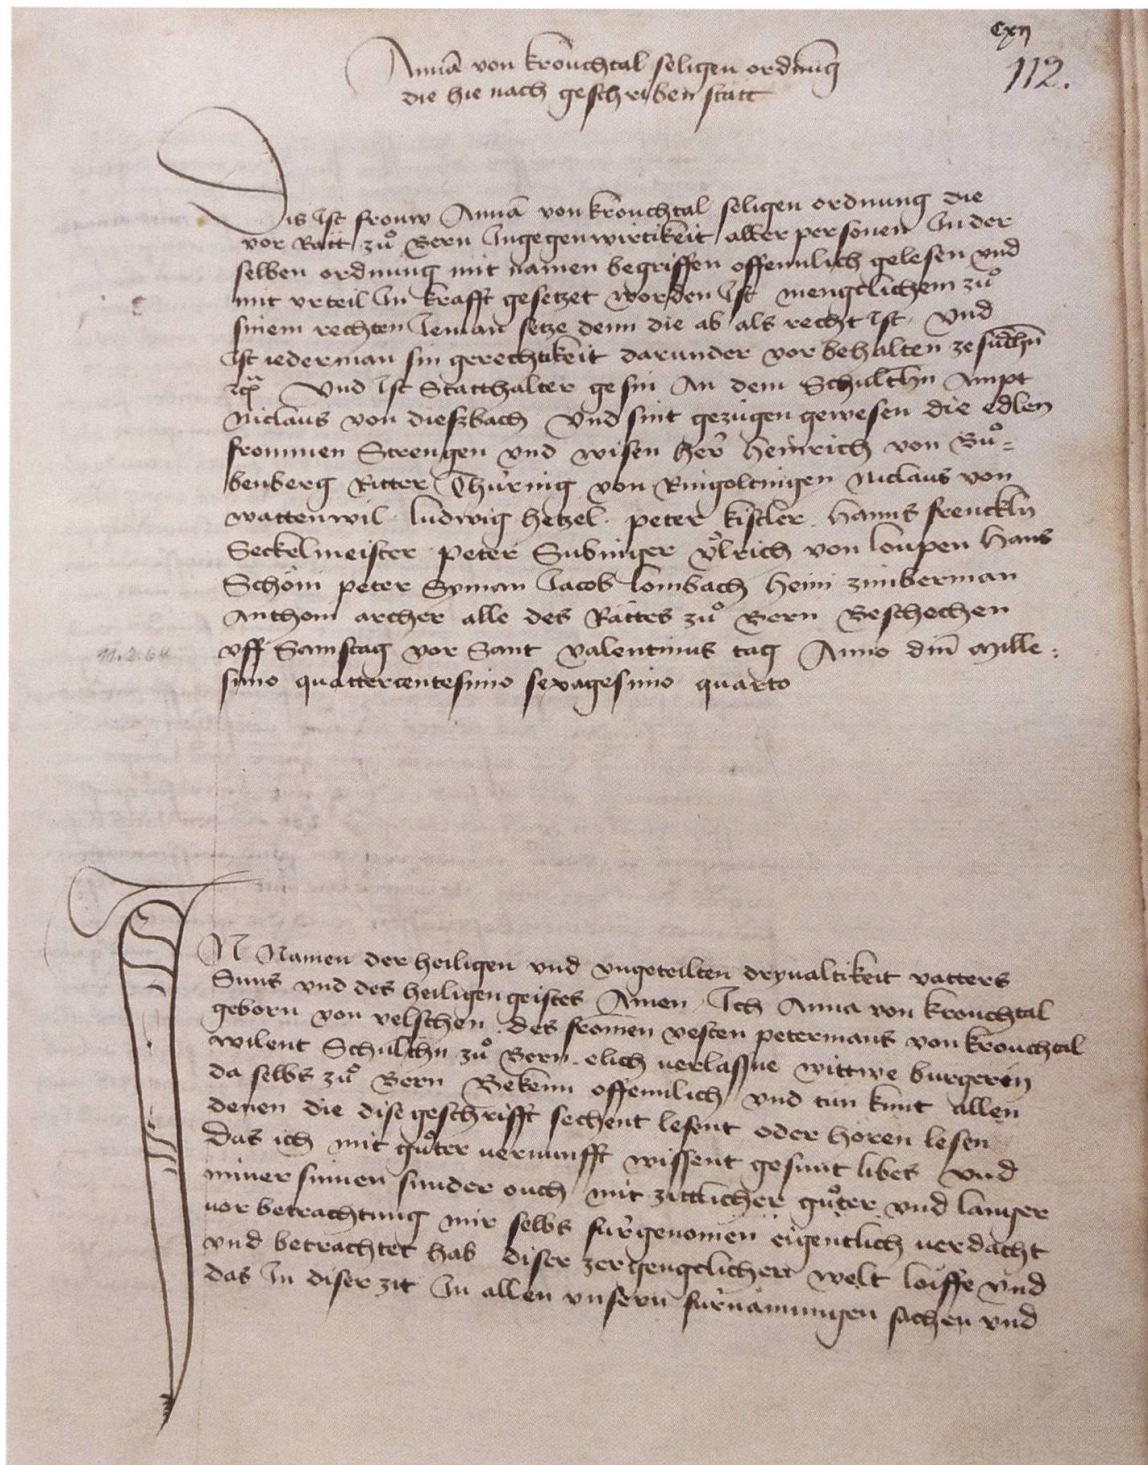 cxij
112.
Annã von krouchtal seligen ordnũg
die hie nach geschriben statt
Dis Ist frouw Annã von krouchtal seligen ordnung die
vor Ratt zů Bern Ingegenwirtikeit aller personen In der
selben ordnung mit namen begriffen offennlich gelesen vnd
mit vrteil In krafft gesetzet worden Ist mengelichem zů
sinem rechten Ieman setze denn die ab als recht Ist vnd
Ist iederman sin gerechtikeit darunder vorbehalten zesůchñ
Vnd Ist Statthalter gesin An dem Schulthñ Ampt
Niclaus von dieszbach Vnd sint gezügen gewesen die edlen
frommen Strengen vnd wisen her Heinrich von Bů=
benberg Ritter Thüring von Ringoltingen Niclaus von
wattenwil . ludwig hetzel . peter kistler . Hanns frencklii
Seckelmeister peter Subinger Ůlrich von loupen Hans
Schöni peter Syman Iacob lombach Heini zimberman
Anthoni archer alle des Rattes zů Bern Beschechen
vff Samstag vor Sant valentinus tag Anno dm̃ Mille=
11.2.64
simo quattercentesimo sexagesimo quarto
IN Namen der heiligen vnd vngeteilten dryualtikeit vatters
Suns vnd des heiligen geistes Amen . Ich Anna von krouchtal
geborn von velschen . des fromẽn vesten petermans von krouchtal
wilent Schulthñ zů Bern . elich verlassne wittwe burgerin
da selbs zů Bern Bekenn offennlich vnd tun kunt allen
denen die dise geschrifft sechent lesent oder hören lesen
Das ich mit gůter vernunfft wissent gesunt libes vnd
miner sinnen sunder ouch mit zittlicher gůter vnd langer
vorbetrachtung mir selbs fürgenomen eigentlich verdacht
vnd betrachtet hab diser zergengclichen welt löiffe vnd
das In diser zit In allen vnsern fürnämungen sachen vnd